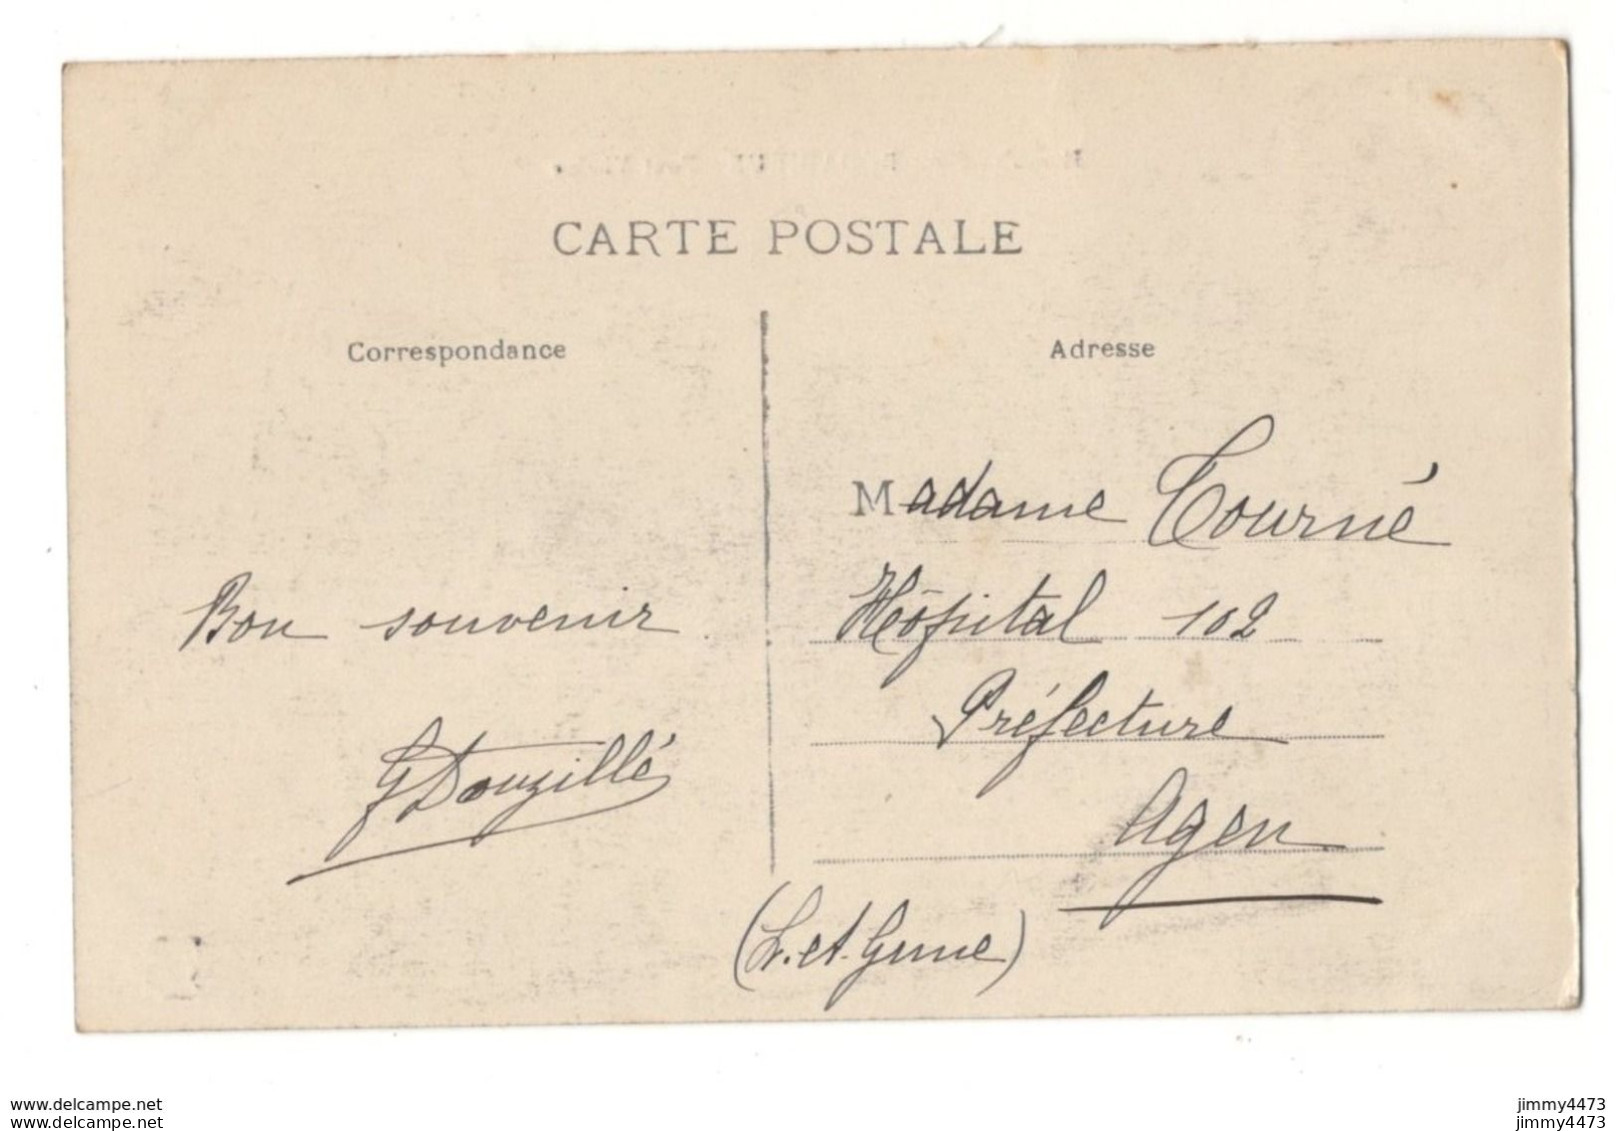 CARTE POSTALE
Correspondance
Adresse
Bon souvenir
G Douzillé
Madame Tourné
Hôpital 102
Préfecture
Agen
(L. et. Garne)
www.delcampe.net
www.delcampe.net
jimmy4473
jimmy4473